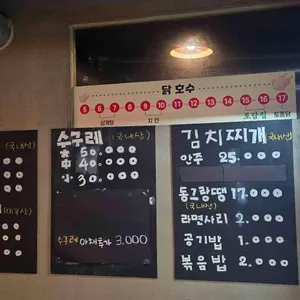 닭 호수
5 6 7 8 9 10 11 12 13 14 15 16 17
삼계탕 치킨 토닭집 토종닭
(국내산)
수구레 (국내산)
大 50.000
中 40.000
小 30.000
수구레 야채추가 3.000
김치찌개 국내산
안주 25.000
동그랑땡 17.000
(국내산)
라면사리 2.000
공기밥 1.000
볶음밥 2.000